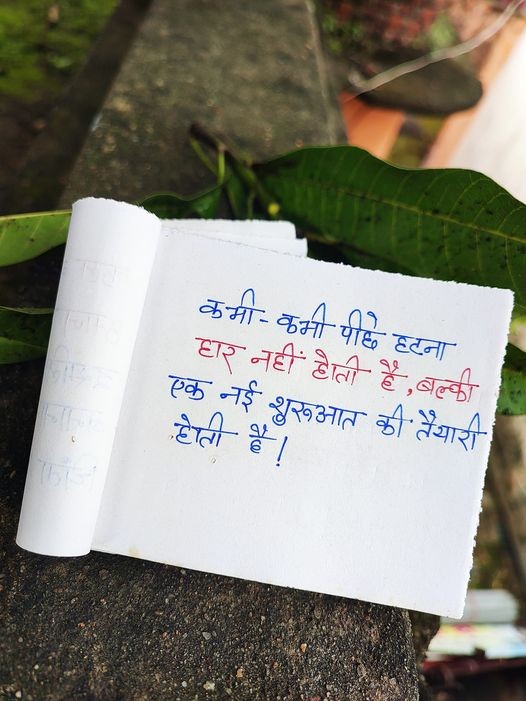 कभी-कभी पीछे हटना
हार नहीं होती है, बल्की
एक नई शुरूआत की तैयारी
होती है!